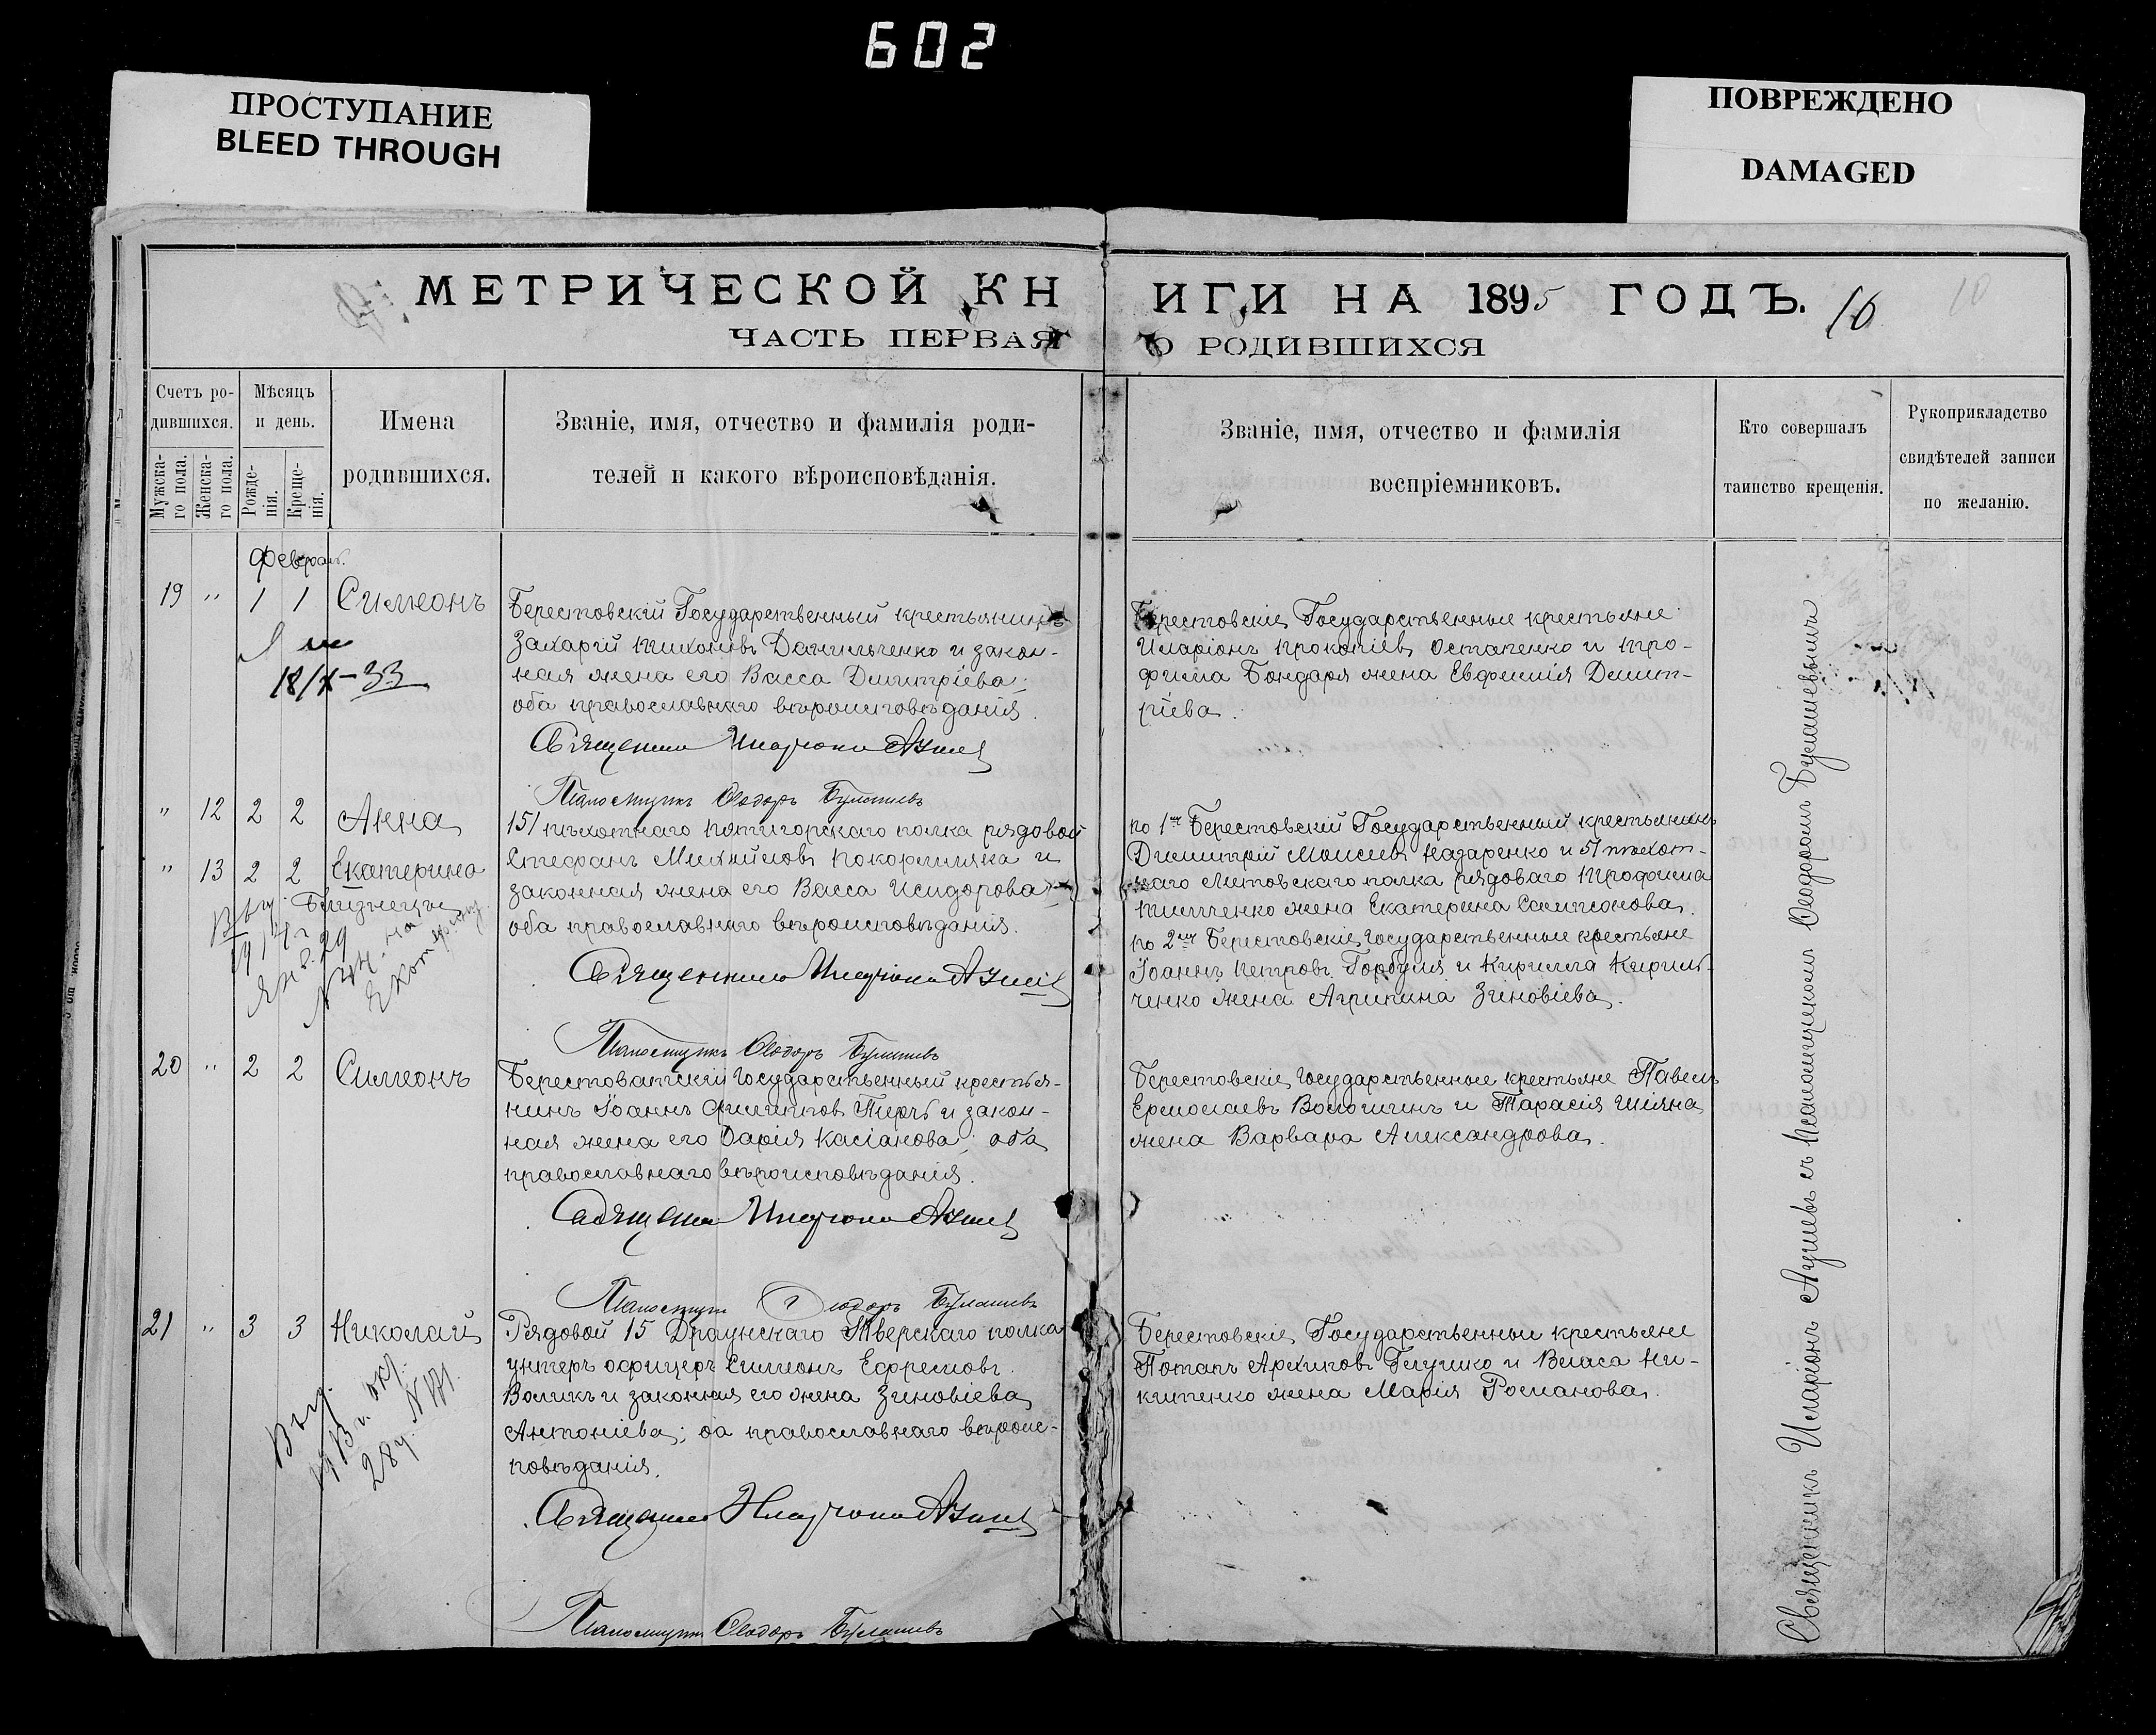 602
ПРОСТУПАНИЕ
BLEED THROUGH
ПОВРЕЖДЕНО
DAMAGED
МЕТРИЧЕСКОЙ КНИГИ НА 1895 ГОДЪ. 10
10
ЧАСТЬ ПЕРВАЯ О РОДИВШИХСЯ
Счетъ ро-
дившихся.
Мужска-
го пола.
Женска-
го пола.
Мѣсяцъ
и день.
Рожде-
нія.
Креще-
нія.
Имена
родившихся.
Званіе, имя, отчество и фамилія роди-
телей и какого вѣроисповѣданія.
Званіе, имя, отчество и фамилія
воспріемниковъ.
Кто совершалъ
таинство крещенія.
Рукоприкладство
свидѣтелей записи
по желанію.
Февраль.
19 " 1 1 Симеонъ
18/X-33
Берестовскій Государственный крестьянинъ
Захарій Тихоновъ Данильченко и закон-
ная жена его Васса Димитріева;
оба православнаго вѣроисповѣданія.
Священникъ Иларіонъ
Берестовскіе Государственные крестьяне
Иларіонъ Прокопіевъ Остапенко и Тро-
фима Бондаря жена Евфимія Димит-
ріева.
Псаломщикъ Ѳеодоръ
" 12 2 2 Анна
" 13 2 2 Екатерина
Выд. Близнецы
1914 г.
Янв. 29
на
Екатерину
151 пѣхотнаго Пятигорскаго полка рядовой
Стефанъ Михайловъ Покормляка и
законная жена его Васса Исидорова
оба православнаго вѣроисповѣданія.
Священникъ Иларіонъ
по 1й Берестовскій Государственный крестьянинъ
Димитрій Моисеевъ Назаренко и 51 пѣхот-
наго Литовскаго полка рядоваго Трофима
жена Екатерина Самсонова.
по 2й Берестовскіе Государственные крестьяне
Іоаннъ Петровъ Горбуля и Кирилла Кирил-
ченко жена Агрипина Зиновіева.
Псаломщикъ Ѳеодоръ
20 " 2 2 Симеонъ
Государственный крестья-
нинъ Іоаннъ Филипповъ и закон-
ная жена его Дарія Касіанова; оба
православнаго вѣроисповѣданія.
Священникъ Иларіонъ
Берестовскіе Государственные крестьяне Павелъ
Ермолаевъ Волошинъ и Тарасія Шіяна
жена Варвара Александрова.
Псаломщикъ Ѳеодоръ
21 " 3 3 Николай
Выд.
28
Рядовой 15 Драгунскаго Тверскаго полка
унтеръ офицеръ Симеонъ Ефремовъ
Воликъ и законная его жена Зиновіева
Антоніева; оба православнаго вѣроис-
повѣданія.
Священникъ Иларіонъ
Берестовскіе Государственные крестьяне
Потапъ Архиповъ Глушко и Власа Ни-
китенко жена Марія Романова.
Псаломщикъ Ѳеодоръ
Священникъ Иларіонъ съ Псаломщикомъ Ѳеодоромъ